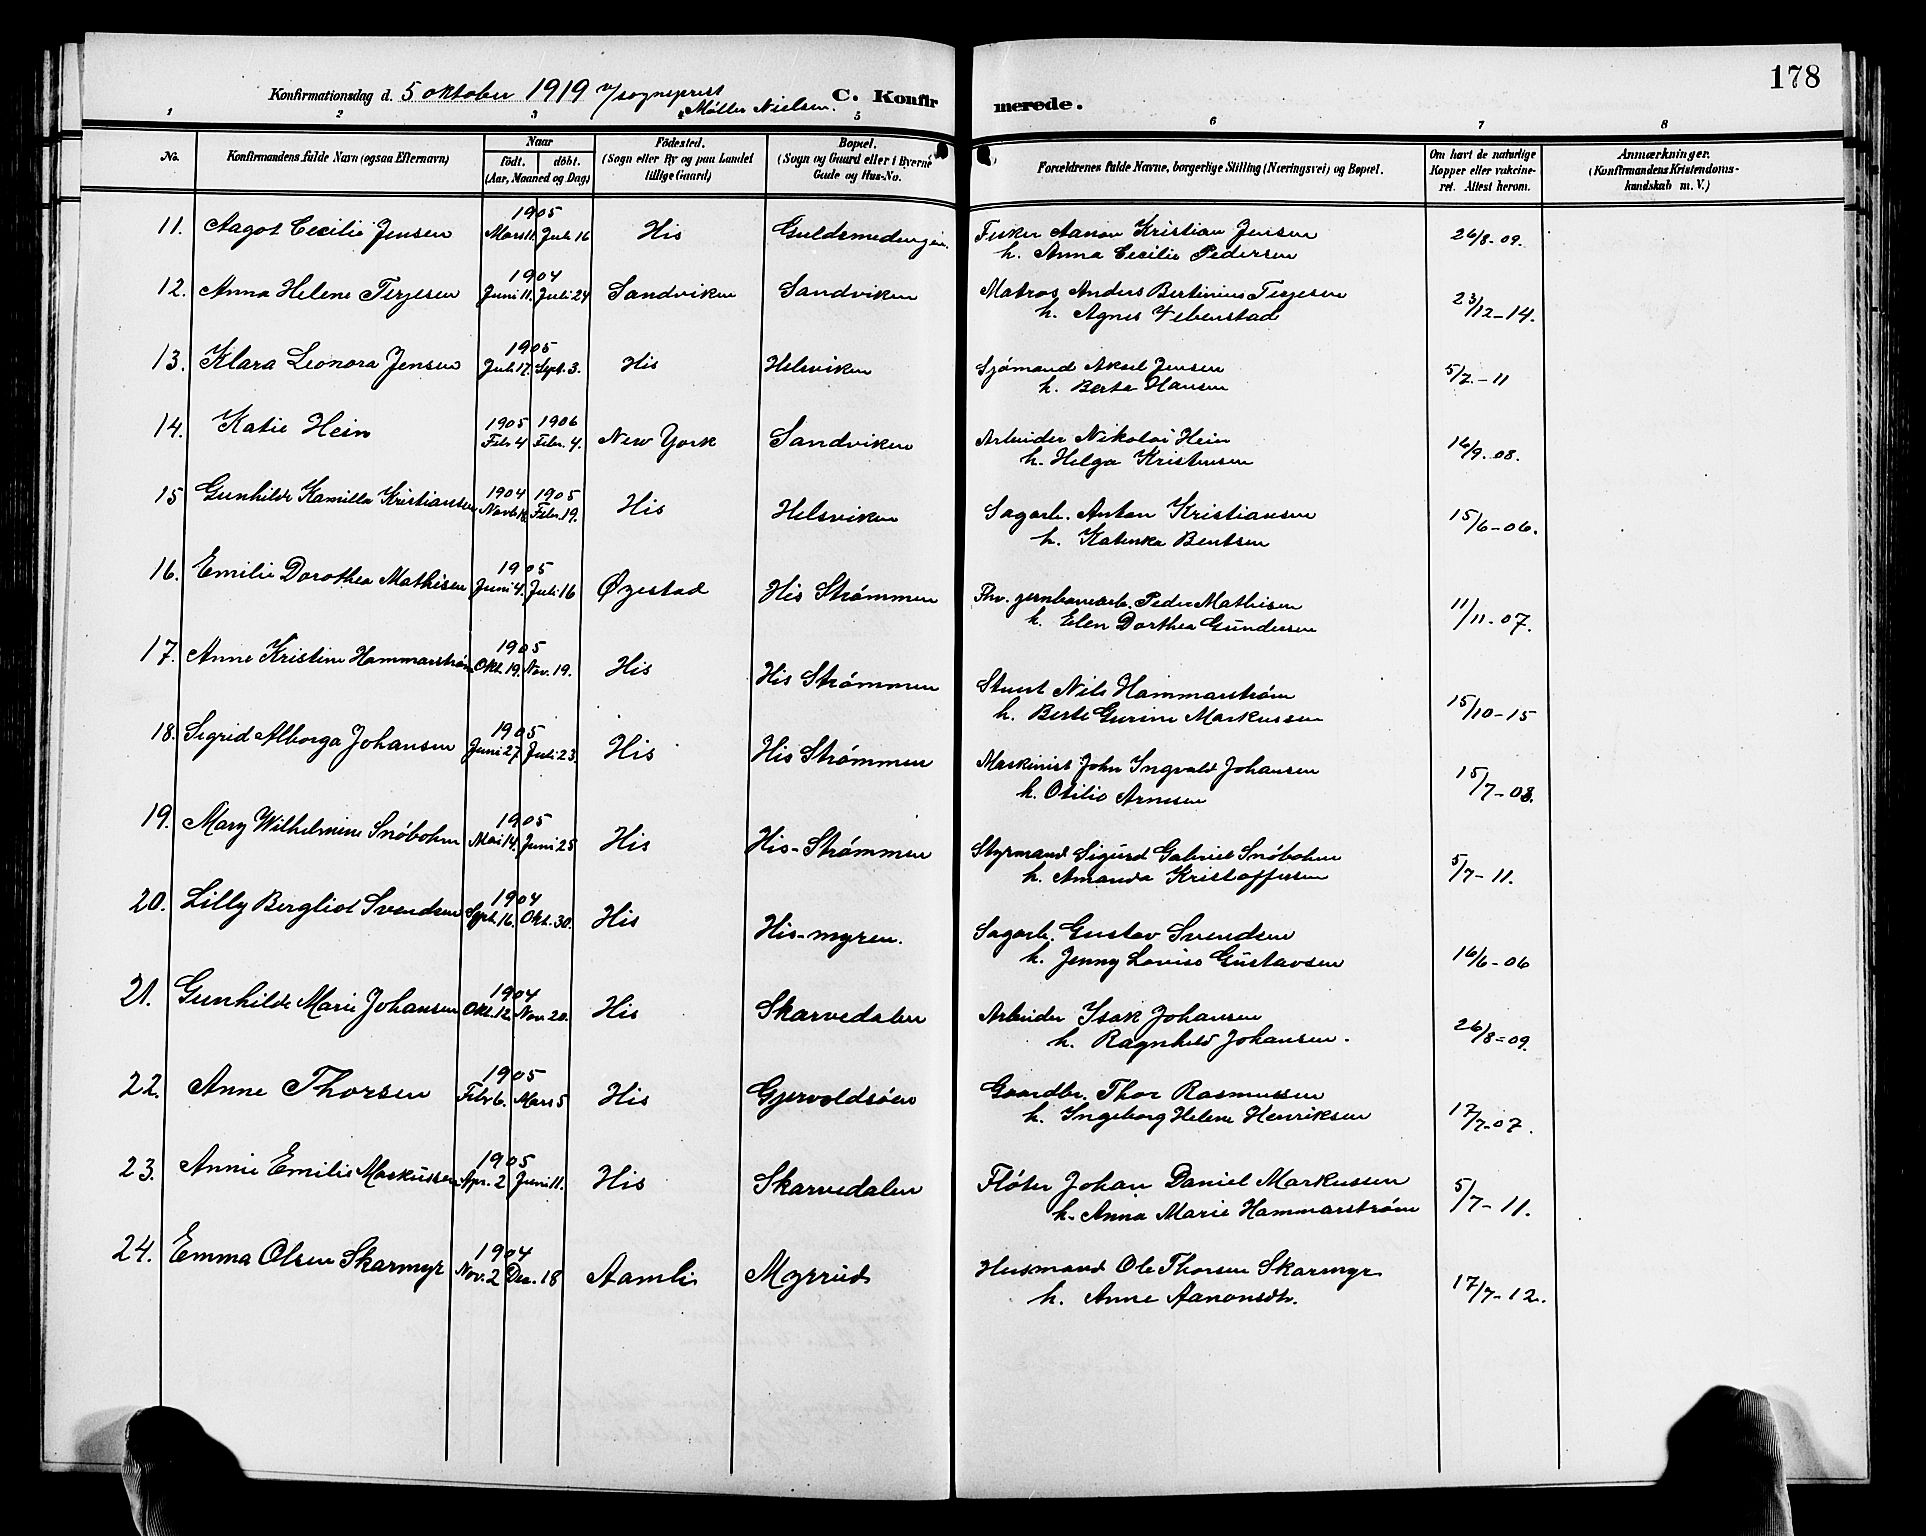 178
Konfirmationsdag d. 5 oktober 1919 v/sogneprest Møller Nielsen. C. Konfirmerede.
1 2 3 4 5 6 7 8
No. Konfirmandens fulde Navn (ogsaa Efternavn) Naar født. døbt. (Aar, Maaned og Dag) Fødested. (Sogn eller By og paa Landet tillige Gaard) Bopæl. (Sogn og Gaard eller i Byerne Gade og Hus-No.) Forældrenes fulde Navne, borgerlige Stilling (Næringsvei) og Bopæl. Om havt de naturlige Kopper eller vakcineret. Attest herom. Anmærkninger. (Konfirmandens Kristendomskundskab m. V.)
1905
11. Aagot Cecilie Jensen Mars 11 Juli 16 His Fisker Aanon Kristian Jensen 26/8-09.
h. Anna Cecilie Pedersen
1904
12. Anna Helene Terjesen Juni 11. Juli 24 Sandviken Sandviken Matros Anders Bertinius Terjesen 23/12-14.
h. Agnes Vebenstad
1905
13. Klara Leonora Jensen Juli 17. Sept. 3. His Helsviken Sjømand Aksel Jensen 5/7-11
h. Berte Hansen
1905 1906
14. Katie Hein Febr 4 Febr. 4. New York Sandviken Arbeider Nikolai Hein 16/9-08.
h. Helga Kristensen
1904 1905
15 Gunhilde Kamilla Kristiansen Novb. Febr. 19. His Helsviken Sagarb. Anton Kristiansen 15/6-06.
h. Katinka Bentsen
1905
16. Emilie Dorothea Mathisen Juni 4. Juli 16 Øyestad His Strømmen Fhv. jernbanearb. Peder Mathisen 11/11-07.
h. Elen Dorthea Gundersen
1905
17. Anne Kristine Hammarstrøm Okt. 19. Nov. 19. His His Strømmen Stuert Nils Hammarstrøm 15/10-15
h. Berte Gurine Markussen
1905
18. Sigrid Alborga Johansen Juni 27 Juli 23. His His Strømmen Maskinist John Ingvald Johansen 15/7-08.
h. Otilie Arnesen
1905
19. Mary Wilhelmine Snøbohm Mai 14. Juni 25 His His-Strømmen Styrmand Sigurd Gabriel Snøbohm 5/7-11.
h. Amanda Kristoffersen
1904
20. Lilly Bergliot Svendsen Sept. 16. Okt. 30. His His-myren. Sagarb. Gustav Svendsen 16/6-06
h. Jenny Lovise Gustavsen
1904
21. Gunhilde Marie Johansen Okt. 12. Nov. 20. His Skarvedalen Arbeider Isak Johansen 26/8-09.
h. Ragnhild Johansen.
1905
22. Anne Thorsen Febr 6. Mars 5 His Gjervoldsøen Gaardbr. Thor Rasmussen 17/7-07.
h. Ingeborg Helene Henriksen
1905
23. Annie Emilie Markussen Apr. 2 Juni 11. His Skarvedalen Fløter Johan Daniel Markussen 5/7-11.
h. Anna Marie Hammarstrøm
1904
24. Emma Olsen Skarmyr Nov. 2 Des. 18 Aamli Myrrud Husmand Ole Thorsen Skarmyr 17/7-12.
h. Anne Aanonsdtr.